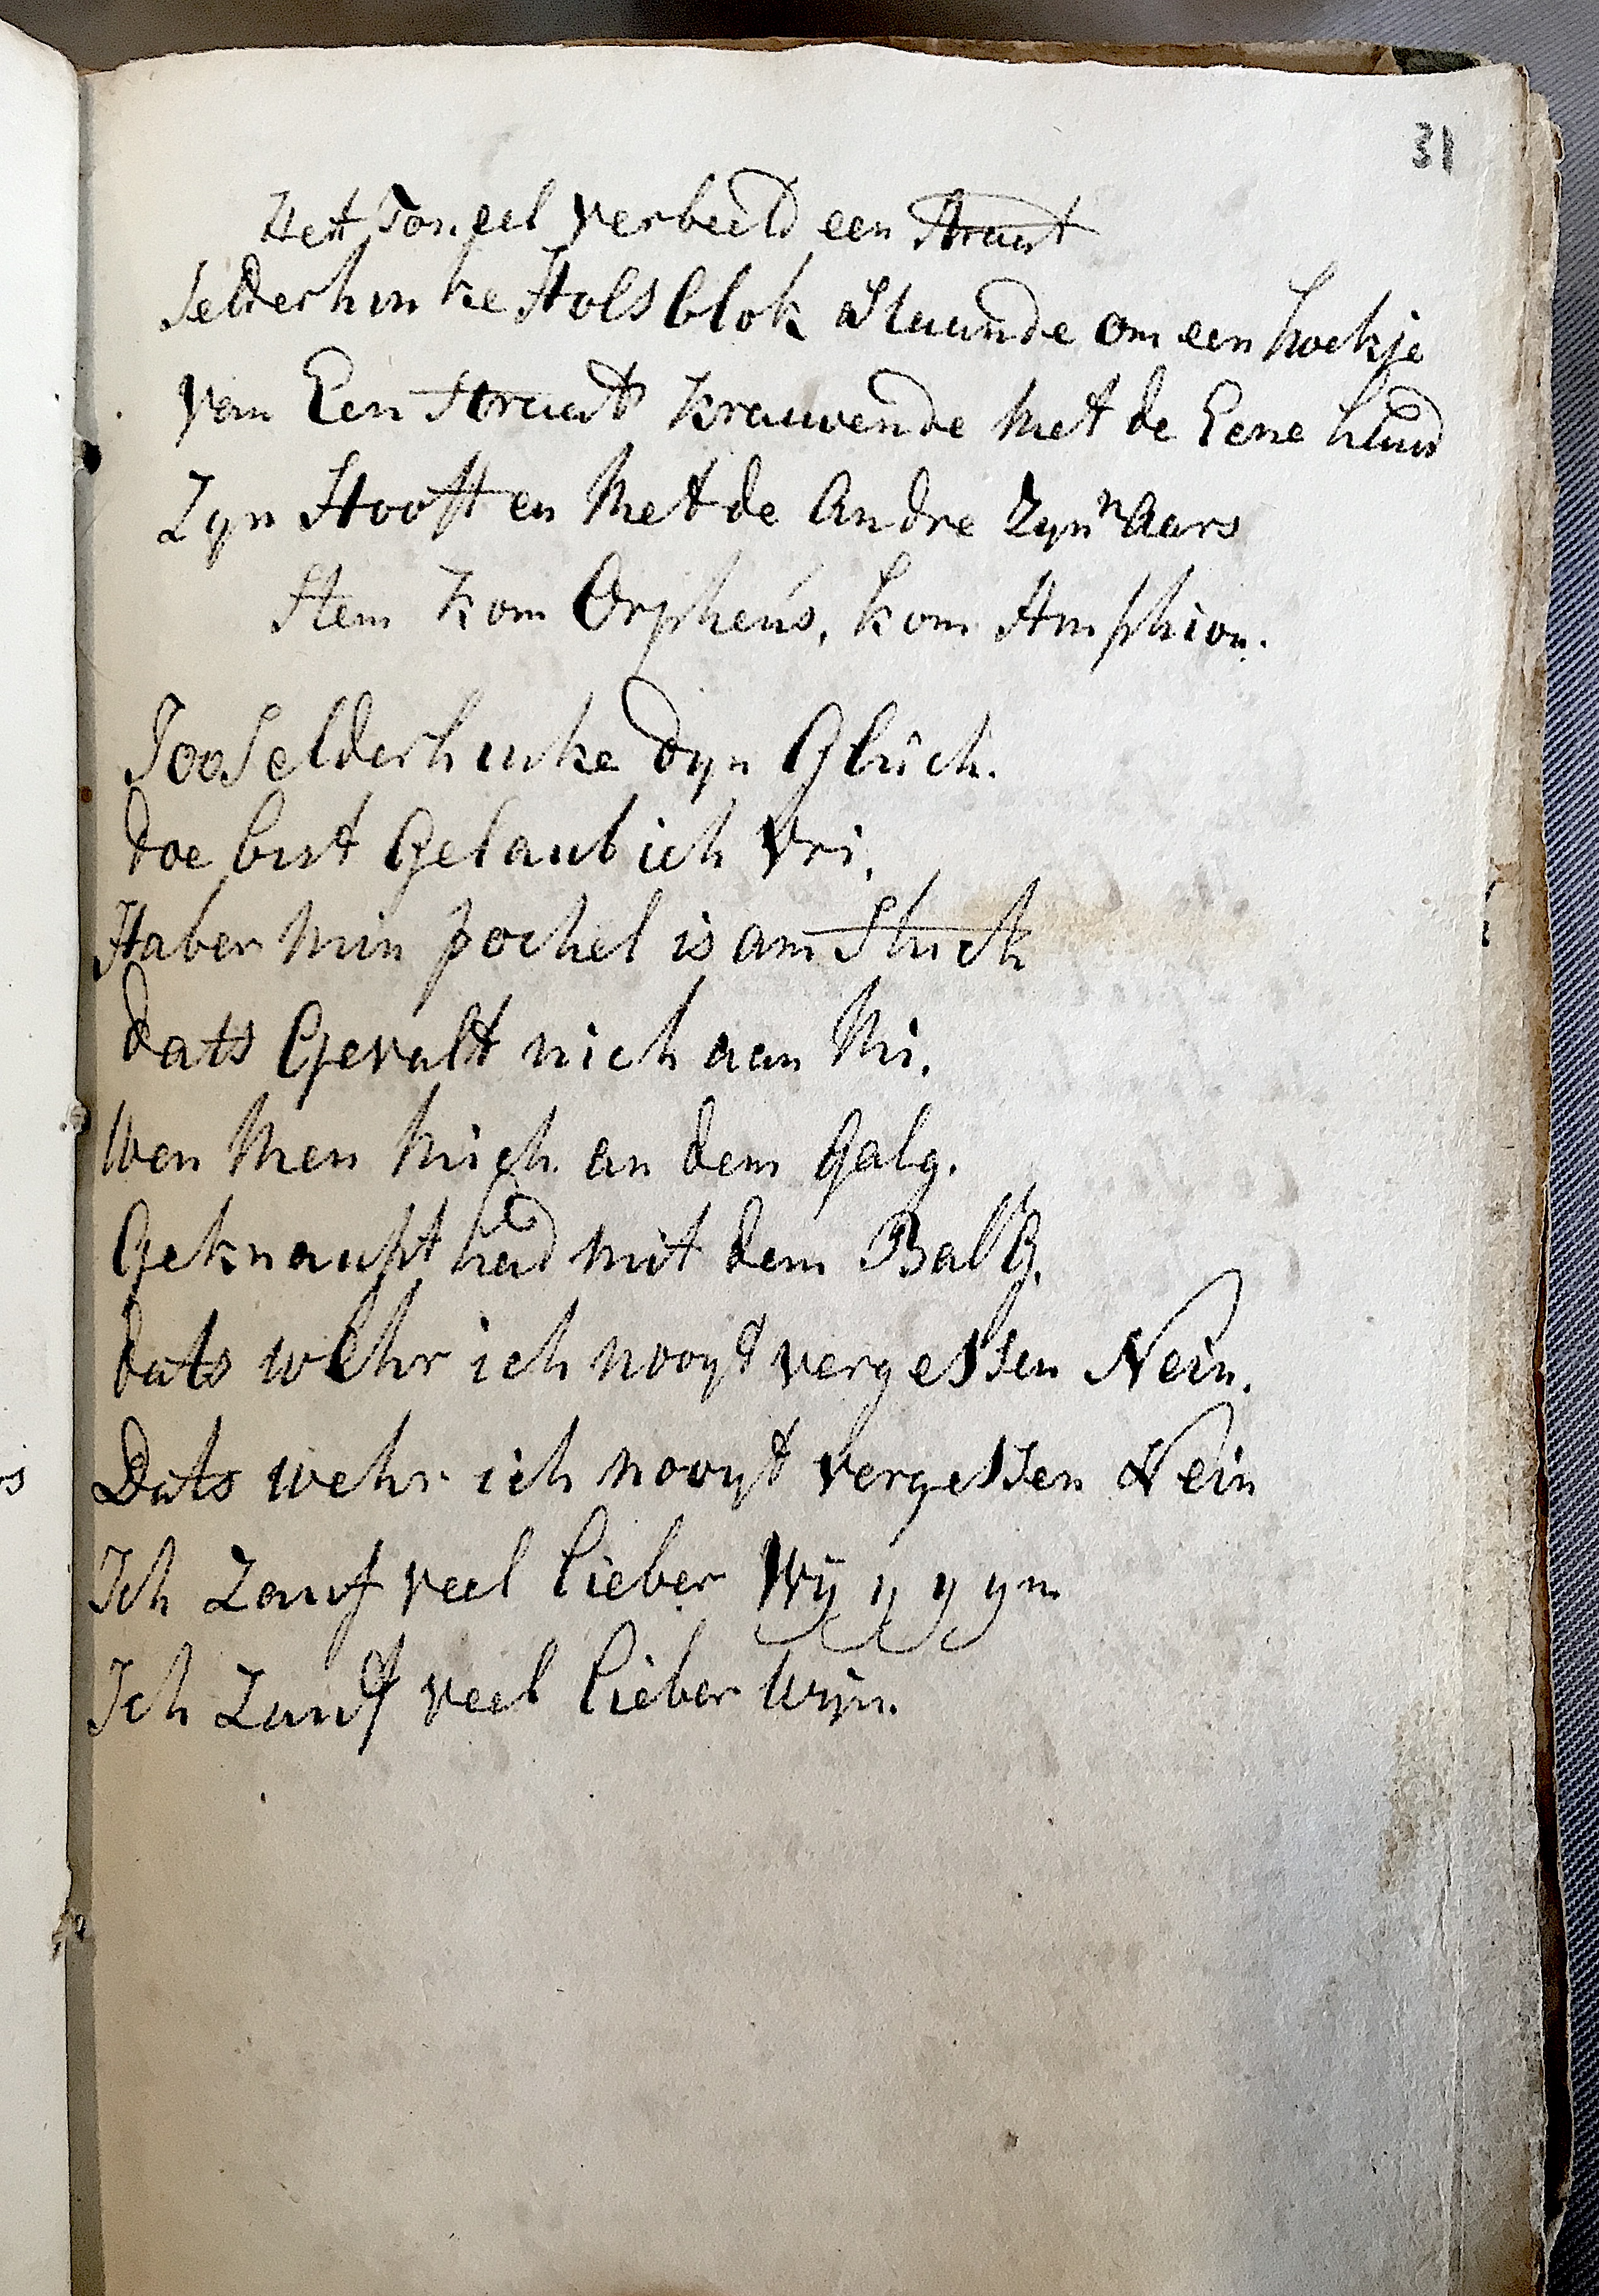 31
Het Toneel verbeeld een Straat
Selderhinke Holsblok Staande om een hoekje
van Een Straat krauwende met de Eene hand
Zyn Hooft en Met de Andre Zyn naars
Stem kom Orpheus, kom Amphion.
Joo Selderhinke dyn Glück.
doe bist Gelaub ich Vri,
Haber min pochel is am Stuck
dats Gevalt nich aan Mi.
Wen Men Mich an dem galg.
Geknaupt had mit dem Balg.
dats wehr ich nooyt vergessen Nein.
Dats wehr ich nooyt vergessen Nein
Ich Zauf veel lieber Wÿ ÿ y yn
Ich Zauf veel lieber Wijn.